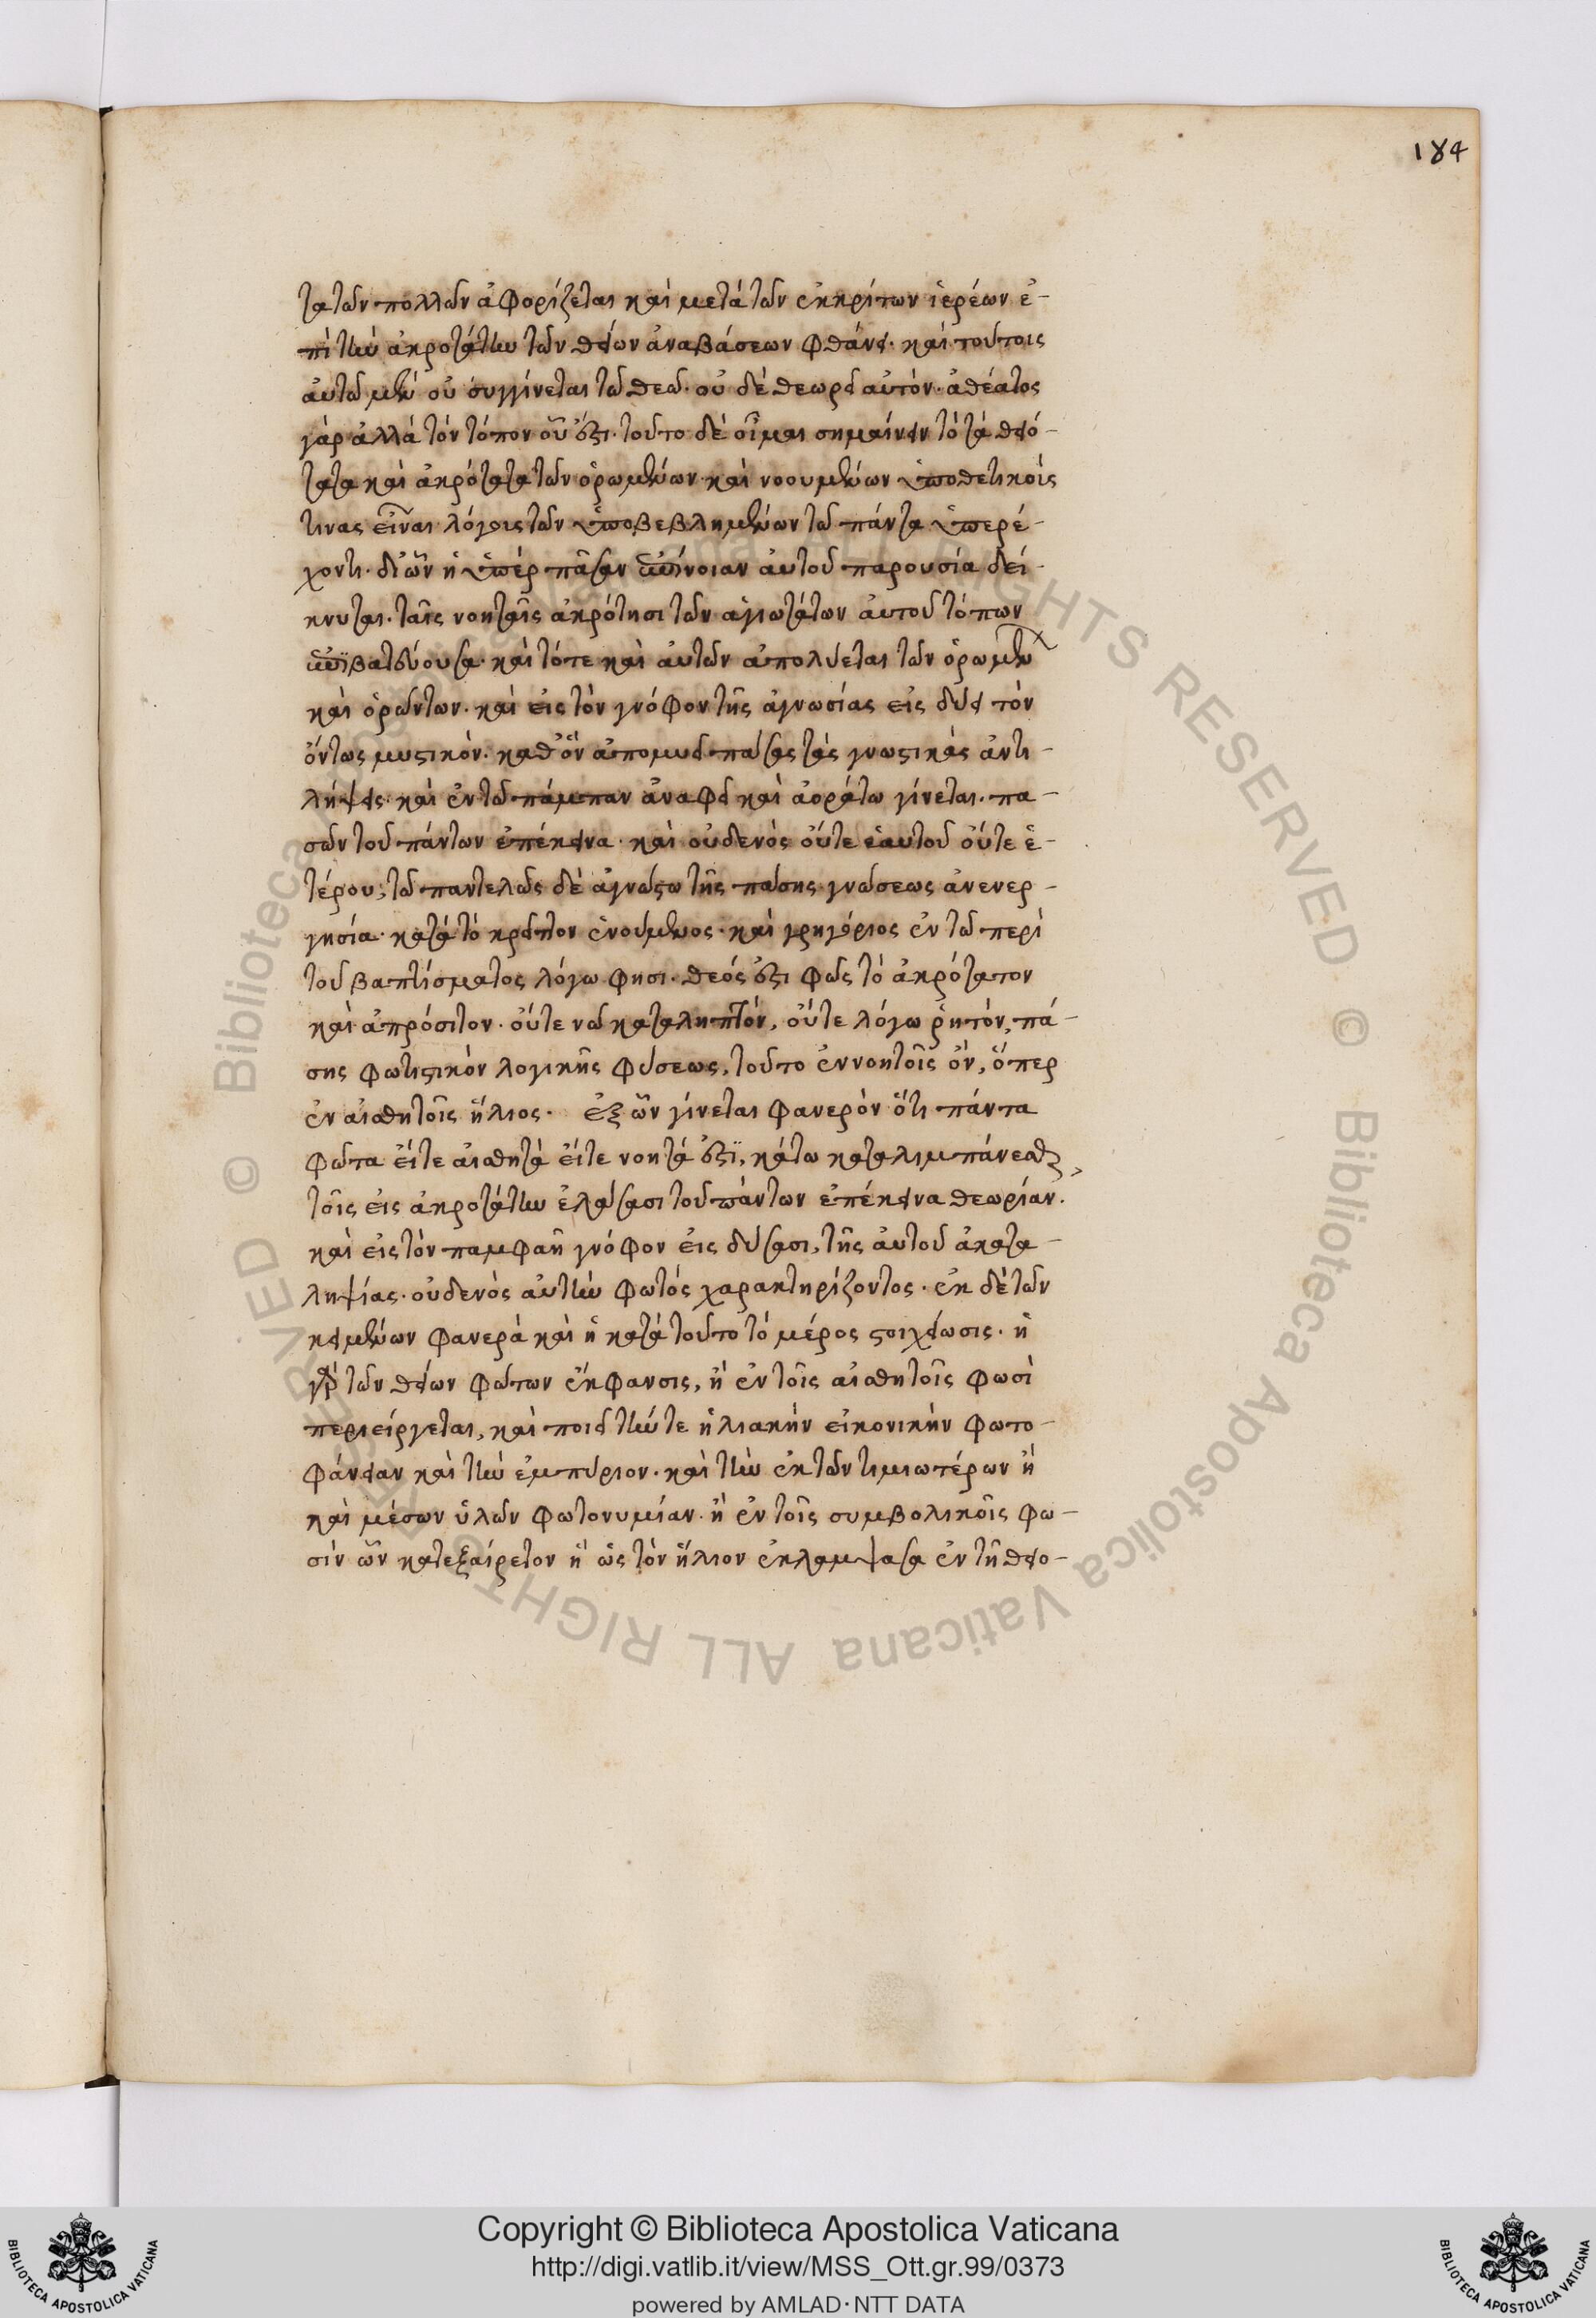 184
τα τῶν πολλῶν ἀφορίζεται καὶ μετὰ τῶν ἐκκρίτων ἱερέων ἐ-
πὶ τὴν ἀκροτάτην τῶν θείων ἀναβάσεων φθάνει. καὶ τούτοις
αὐτῶ μὲν οὐ συγγίνεται τῶ θεῶ. οὐ δὲ θεωρεῖ αὐτόν. ἀθέατος
γὰρ ἀλλὰ τὸν τόπον οὗ ἐστι. τοῦτο δὲ οἶμαι σημαίνειν τὸ τὰ θειό-
τατα καὶ ἀκρότατα τῶν ὁρωμένων καὶ νοουμένων ὑποθετικούς
τινας εἶναι λόγους τῶν ὑποβεβλημένων τῶ πάντα ὑπερέ-
χοντι. δι ὧν ἡ ὑπὲρ πᾶσαν ἐπίνοιαν αὐτοῦ παρουσία δεί-
κνυται. ταῖς νοηταῖς ἀκρότησι τῶν ἁγιωτάτων αὐτοῦ τόπων
ἐπιβατεύουσα. καὶ τότε καὶ αὐτῶν ἀπολύεται τῶν ὁρωμέν
καὶ ὁρώντων. καὶ εἰς τὸν γνόφον τῆς ἀγνωσίας εἰς δύει τὸν
ὄντως μυστικόν. καθ ὃν ἀπομυεῖ πάσας τὰς γνωστικὰς ἀντι-
λήψεις. καὶ ἐν τῶ πάμπαν ἀναφεῖ καὶ ἀοράτω γίνεται. πα-
σῶν τοῦ πάντων ἐπέκεινα. καὶ οὐδενὸς οὔτε ἑαυτοῦ οὔτε ἑ-
τέρου, τῶ παντελῶς δὲ ἀγνώστω τῆς πάσης γνώσεως ἀνενερ-
γησία. κατὰ τὸ κρεῖττον ἑνούμενος. καὶ γρηγόριος ἐν τῶ περὶ
τοῦ βαπτίσματος λόγω φησι. θεός ἐστι φῶς τὸ ἀκρότατον
καὶ ἀπρόσιτον. οὔτε νῶ καταληπτόν, οὔτε λόγω ῥητόν, πά-
σης φωτιστικὸν λογικῆς φύσεως, τοῦτο ἐν νοητοῖς ὂν, ὅπερ
ἐν αἰσθητοῖς ἥλιος. ἐξ ὧν γίνεται φανερὸν ὅτι πάντα
φῶτα εἴτε αἰσθητὰ εἴτε νοητά ἐστι, κάτω καταλιμπάνεσθαι,
τοῖς εἰς ἀκροτάτην ἐλάσασι τοῦ πάντων ἐπέκεινα θεωρίαν.
καὶ εἰς τὸν παμφαῆ γνόφον εἰς δύσασι, τῆς αὐτοῦ ἀκατα-
ληψίας. οὐδενὸς αὐτὴν φωτὸς χαρακτηρίζοντος. ἐκ δὲ τῶν
κειμένων φανερὰ καὶ ἡ κατὰ τοῦτο τὸ μέρος στοιχείωσις. ἡ
γὰρ τῶν θείων φώτων ἔκφανσις, ἢ ἐν τοῖς αἰσθητοῖς φωσὶ
περιείργεται, καὶ ποιεῖ τήν τε ἡλιακὴν εἰκονικὴν φωτο-
φάνειαν καὶ τὴν ἐμπύριον. καὶ τὴν ἐκ τῶν τιμιωτέρων ἢ
καὶ μέσων ὑλῶν φωτονυμίαν. ἢ ἐν τοῖς συμβολικοῖς φω-
σὶν ὧν κατεξαίρετον ἡ ὡς τὸν ἥλιον ἐκλαμψασα ἐν τῆ θεο-
Copyright © Biblioteca Apostolica Vaticana
http://digi.vatlib.it/view/MSS_Ott.gr.99/0373
powered by AMLAD·NTT DATA
BIBLIOTECA APOSTOLICA VATICANA
BIBLIOTECA APOSTOLICA VATICANA
© Biblioteca Apostolica Vaticana ALL RIGHTS RESERVED © Biblioteca Apostolica Vaticana ALL RIGHTS RESERVED